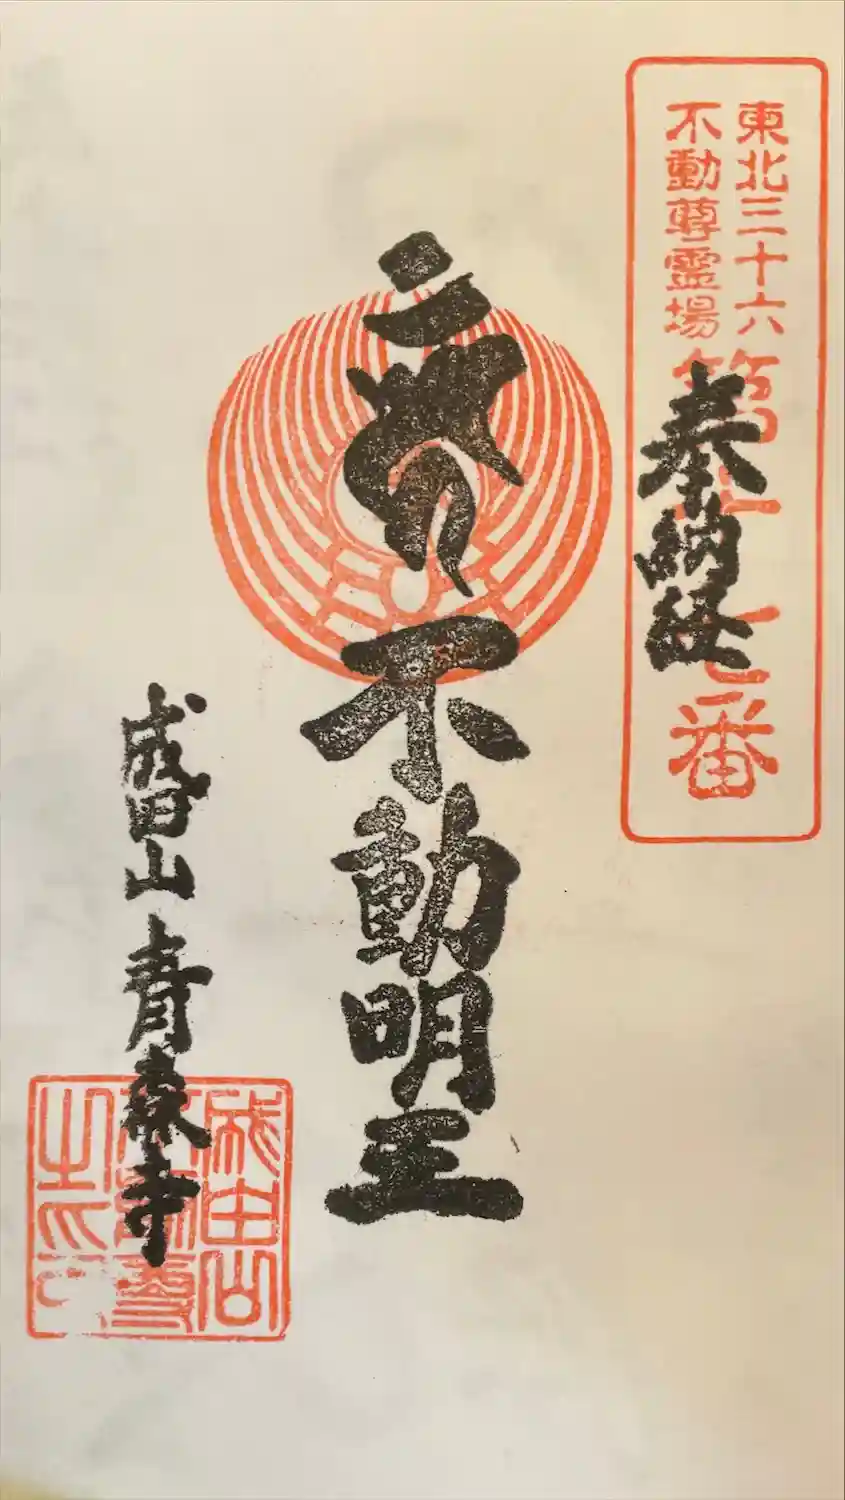 東北三十六
不動尊霊場
第十七番
奉納経
不動明王
成田山青森寺
成田山